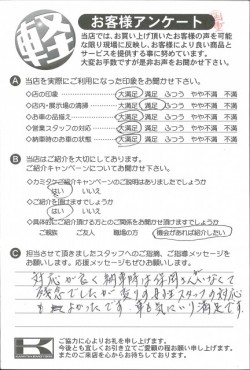 軽
お客様アンケート
当店では、お買い上げ頂いたお客様の声を可能
な限り現場に反映し、お客様により良い商品と
サービスを提供する事に努めています。
大変お手数ですが是非お声をお聞かせ下さい。
A 当店を実際にご利用になった印象をお聞かせ下さい。
◇店の印象 大満足 満足 ふつう やや不満 不満
◇店内・展示場の清掃 大満足 満足 ふつう やや不満 不満
◇お車の品揃え 大満足 満足 ふつう やや不満 不満
◇営業スタッフの対応 大満足 満足 ふつう やや不満 不満
◇納車時のお車の状態 大満足 満足 ふつう やや不満 不満
B 当店はご紹介を大切にしております。
ご紹介キャンペーンについてお聞かせ下さい。
◇カミタケご紹介キャンペーンのご説明はありましたでしょうか
はい いいえ
◇ご紹介を頂けますでしょうか
はい いいえ
◇具体的にご紹介頂ける方とのご関係をお聞かせ頂けますでしょうか
ご親族 ご友人 職場の方 機会があれば紹介したい
C 担当させて頂きましたスタッフへのご指摘、ご指導メッセージを
お願いします。応援メッセージもぜひお願いします。
対応が良く 納車時は
残念でしたが 変りの スタッフの対応
も よかったです。車も気にいり満足です。
K
ご協力に心よりお礼を申し上げます。
今後とも宜しくお引き立てご愛顧の程お願い申し上げます。
またのご来店を心からお待ちしております。